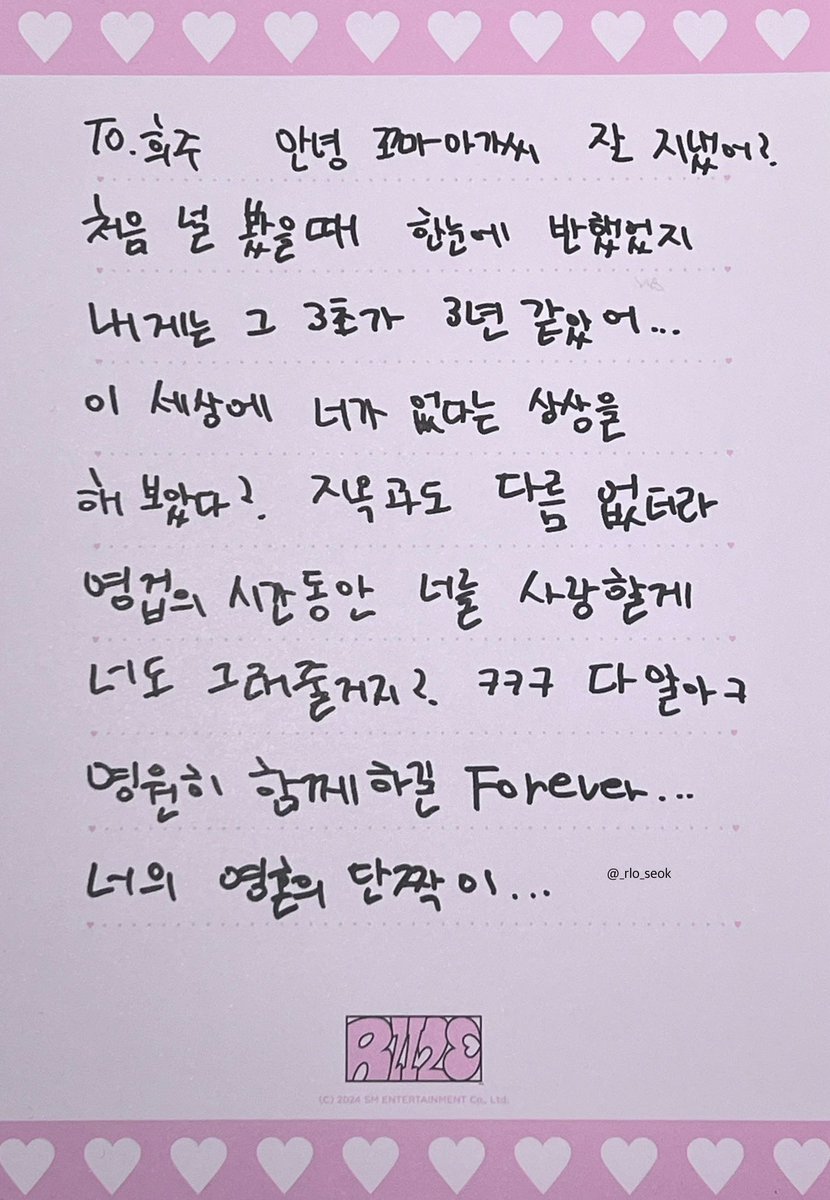 To. 희주 안녕 꼬마아가씨 잘 지냈어?
처음 널 봤을때 한눈에 반했었지
내게는 그 3초가 3년 같았어...
이 세상에 너가 없다는 상상을
해 보았다? 지옥과도 다름 없더라
영겁의 시간동안 너를 사랑할게
너도 그래줄거지? ㅋㅋㅋ 다 알아ㅋ
영원히 함께하길 Forever...
너의 영혼의 단짝이...
@_rlo_seok
RIIZE
(C) 2024 SM ENTERTAINMENT Co., Ltd.